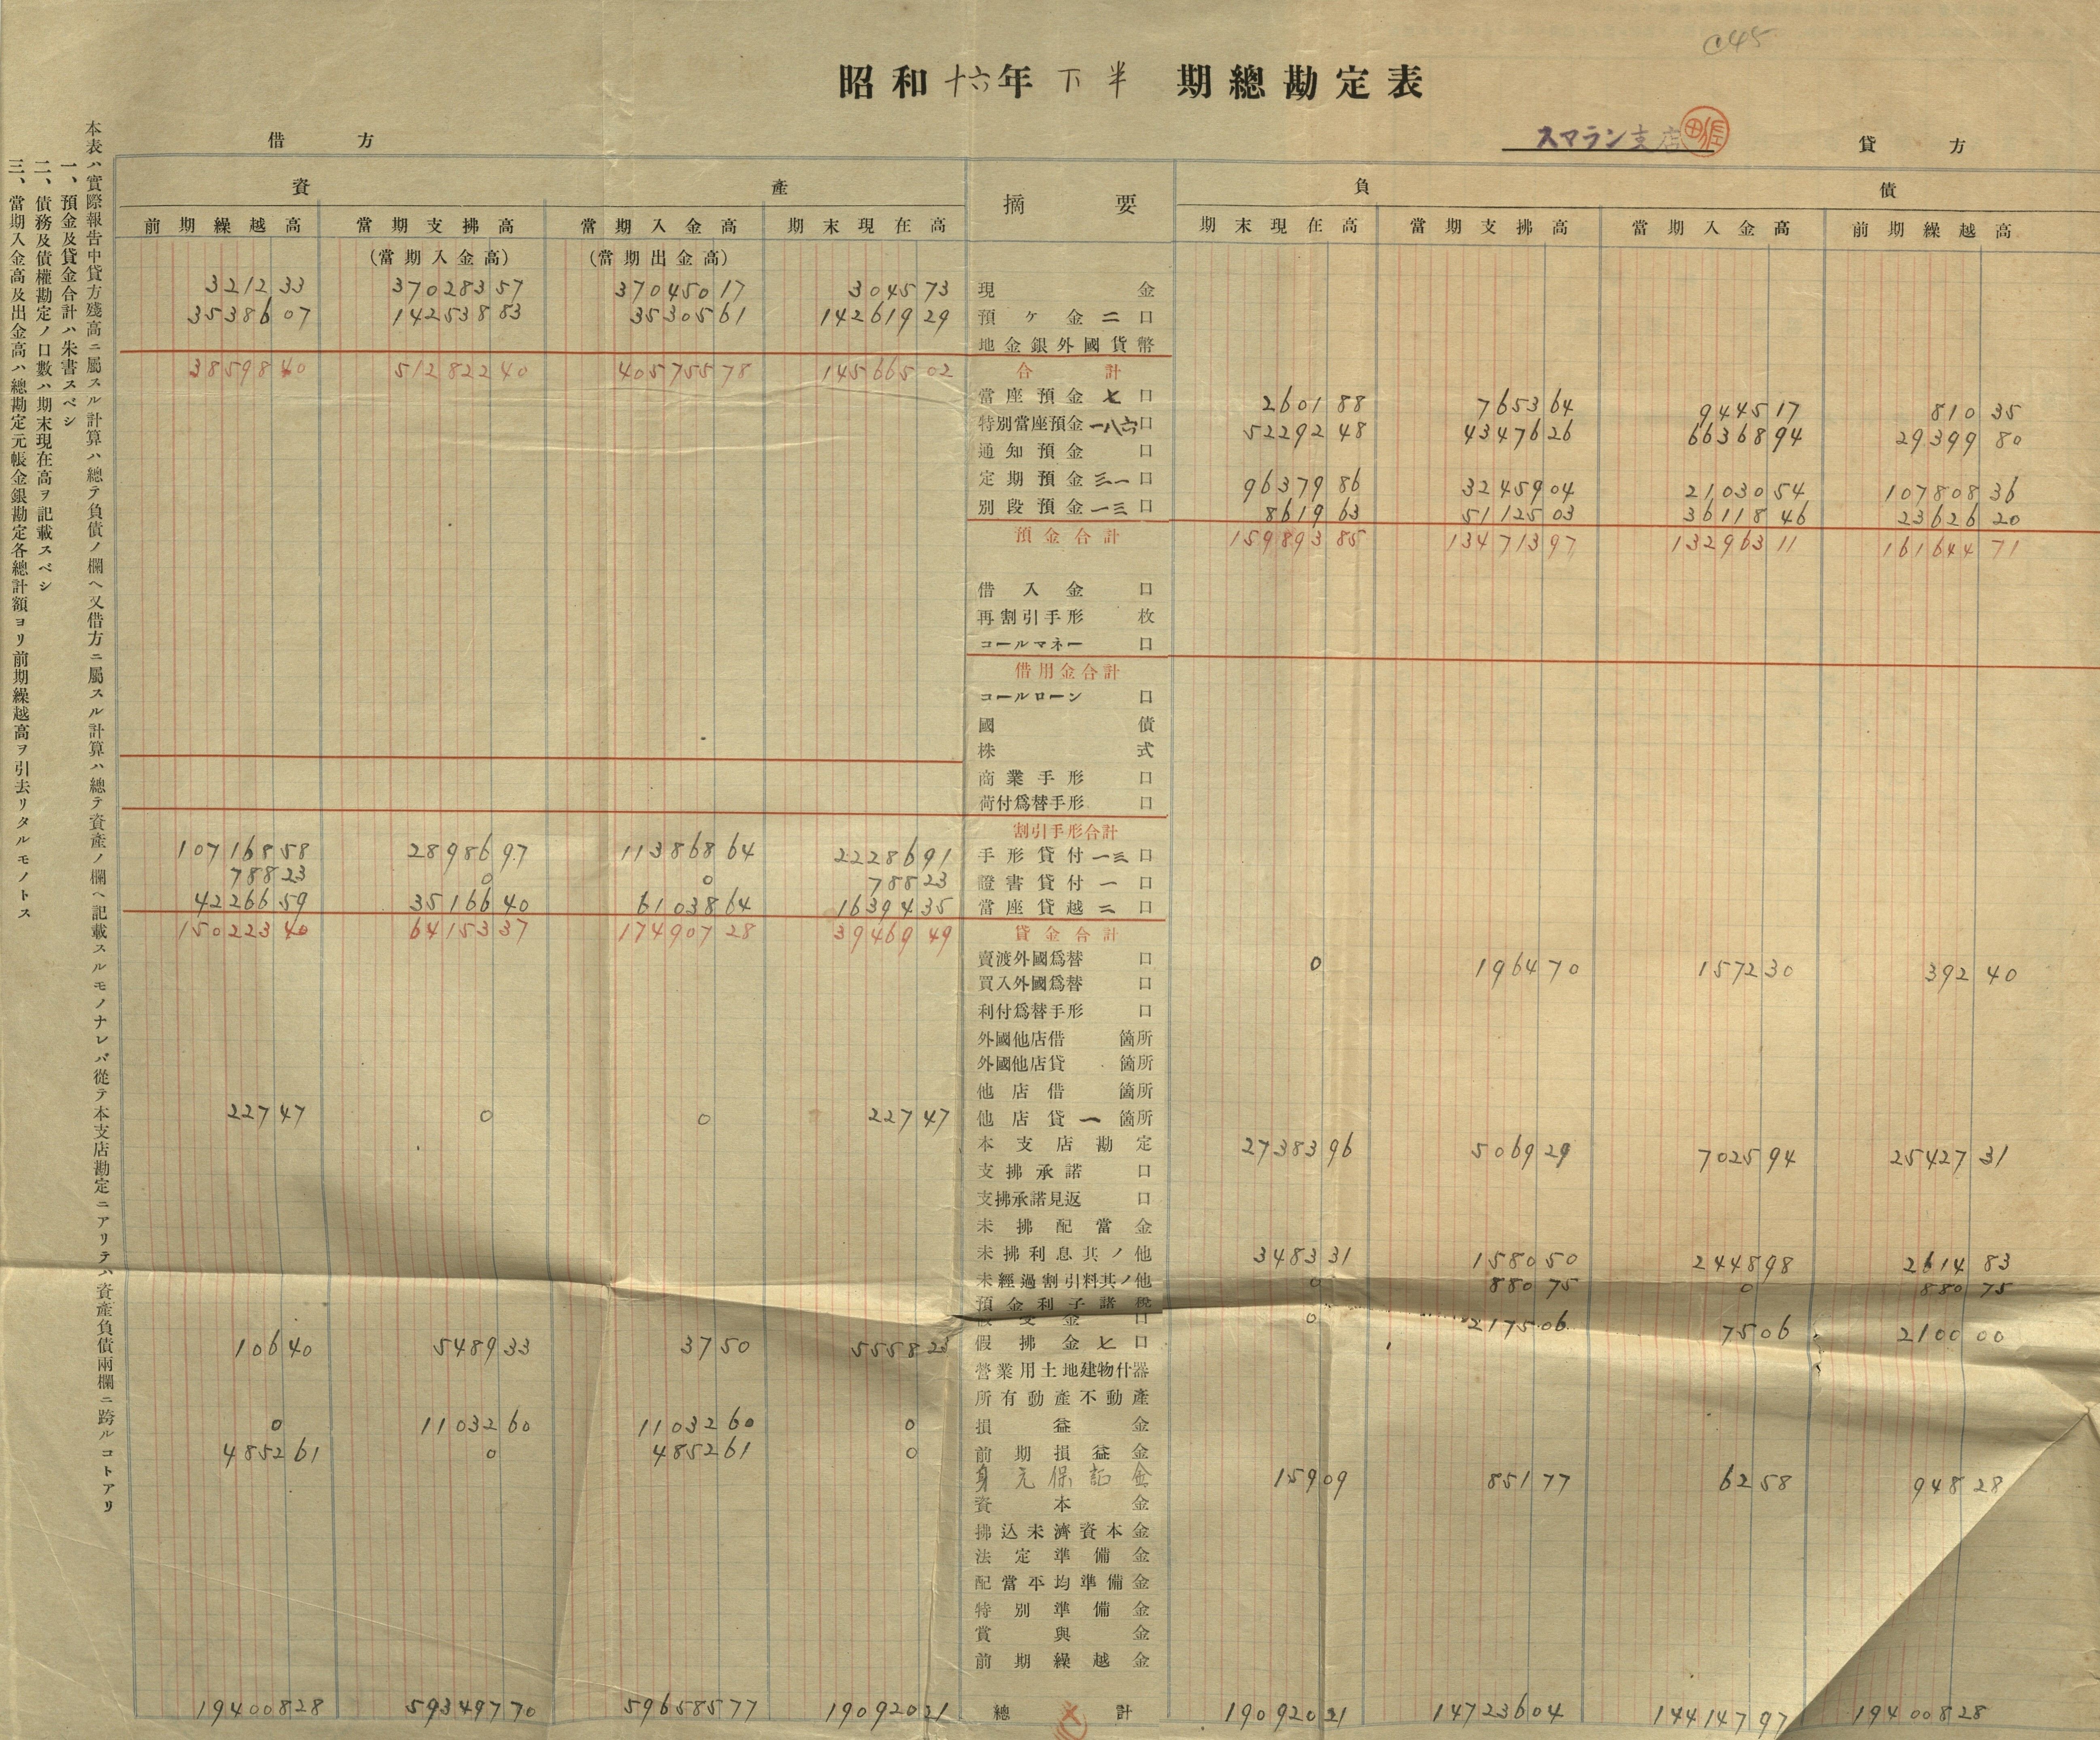 C45
昭和十六年下半期總勘定表
スマラン支店
借方
貸方
資產
摘要
負債
前期繰越高 當期支拂高 當期入金高 期末現在高 期末現在高 當期支拂高 當期入金高 前期繰越高
(當期入金高) (當期出金高)
3212 33 370283 57 370450 17 3045 73 現金
35386 07 142538 83 35305 61 142619 29 預ケ金二口
地金銀外國貨幣
38598 40 512822 40 405755 78 145665 02 合計
當座預金七口 2601 88 7653 64 9445 17 810 35
特別當座預金一八六口 52292 48 43476 26 66368 94 29399 80
通知預金口
定期預金三一口 96379 86 32459 04 21030 54 107808 36
別段預金一三口 8619 63 51125 03 36118 46 23626 20
預金合計 159893 85 134713 97 132963 11 161644 71
借入金口
再割引手形枚
コールマネー口
借用金合計
コールローン口
國債
株式
商業手形口
荷付爲替手形口
割引手形合計
107168 58 28986 97 113868 64 22286 91 手形貸付一三口
788 23 0 0 788 23 證書貸付一口
42266 59 35166 40 61038 64 16394 35 當座貸越二口
150223 40 64153 37 174907 28 39469 49 貸金合計
賣渡外國爲替口 0 1964 70 1572 30 392 40
買入外國爲替口
利付爲替手形口
外國他店借箇所
外國他店貸箇所
他店借箇所
227 47 0 0 227 47 他店貸一箇所
本支店勘定 27383 96 5069 29 7025 94 25427 31
支拂承諾口
支拂承諾見返口
未拂配當金
未拂利息其ノ他 3483 31 1580 50 2448 98 2614 83
未經過割引料其ノ他 0 880 75 0 880 75
預金利子諸稅
假受金口 0 2175 06 75 06 2100 00
106 40 5489 33 37 50 5558 23 假拂金七口
營業用土地建物什器
所有動產不動產
0 11032 60 11032 60 0 損益金
4852 61 0 4852 61 0 前期損益金
身元保証金 159 09 851 77 62 58 948 28
資本金
拂込未濟資本金
法定準備金
配當平均準備金
特別準備金
賞與金
前期繰越金
194008 28 593497 70 596585 77 190920 21 總計 190920 21 147236 04 144147 97 194008 28
本表ハ實際報告中貸方殘高ニ屬スル計算ハ總テ負債ノ欄ヘ又借方ニ屬スル計算ハ總テ資產ノ欄ヘ記載スルモノナレバ從テ本支店勘定ニアリテハ資產負債兩欄ニ跨ルコトアリ
一、預金及貸金合計ハ朱書スベシ
二、債務及債權勘定ノ口數ハ期末現在高ヲ記載スベシ
三、當期入金高及出金高ハ總勘定元帳金銀勘定各總計額ヨリ前期繰越高ヲ引去リタルモノトス